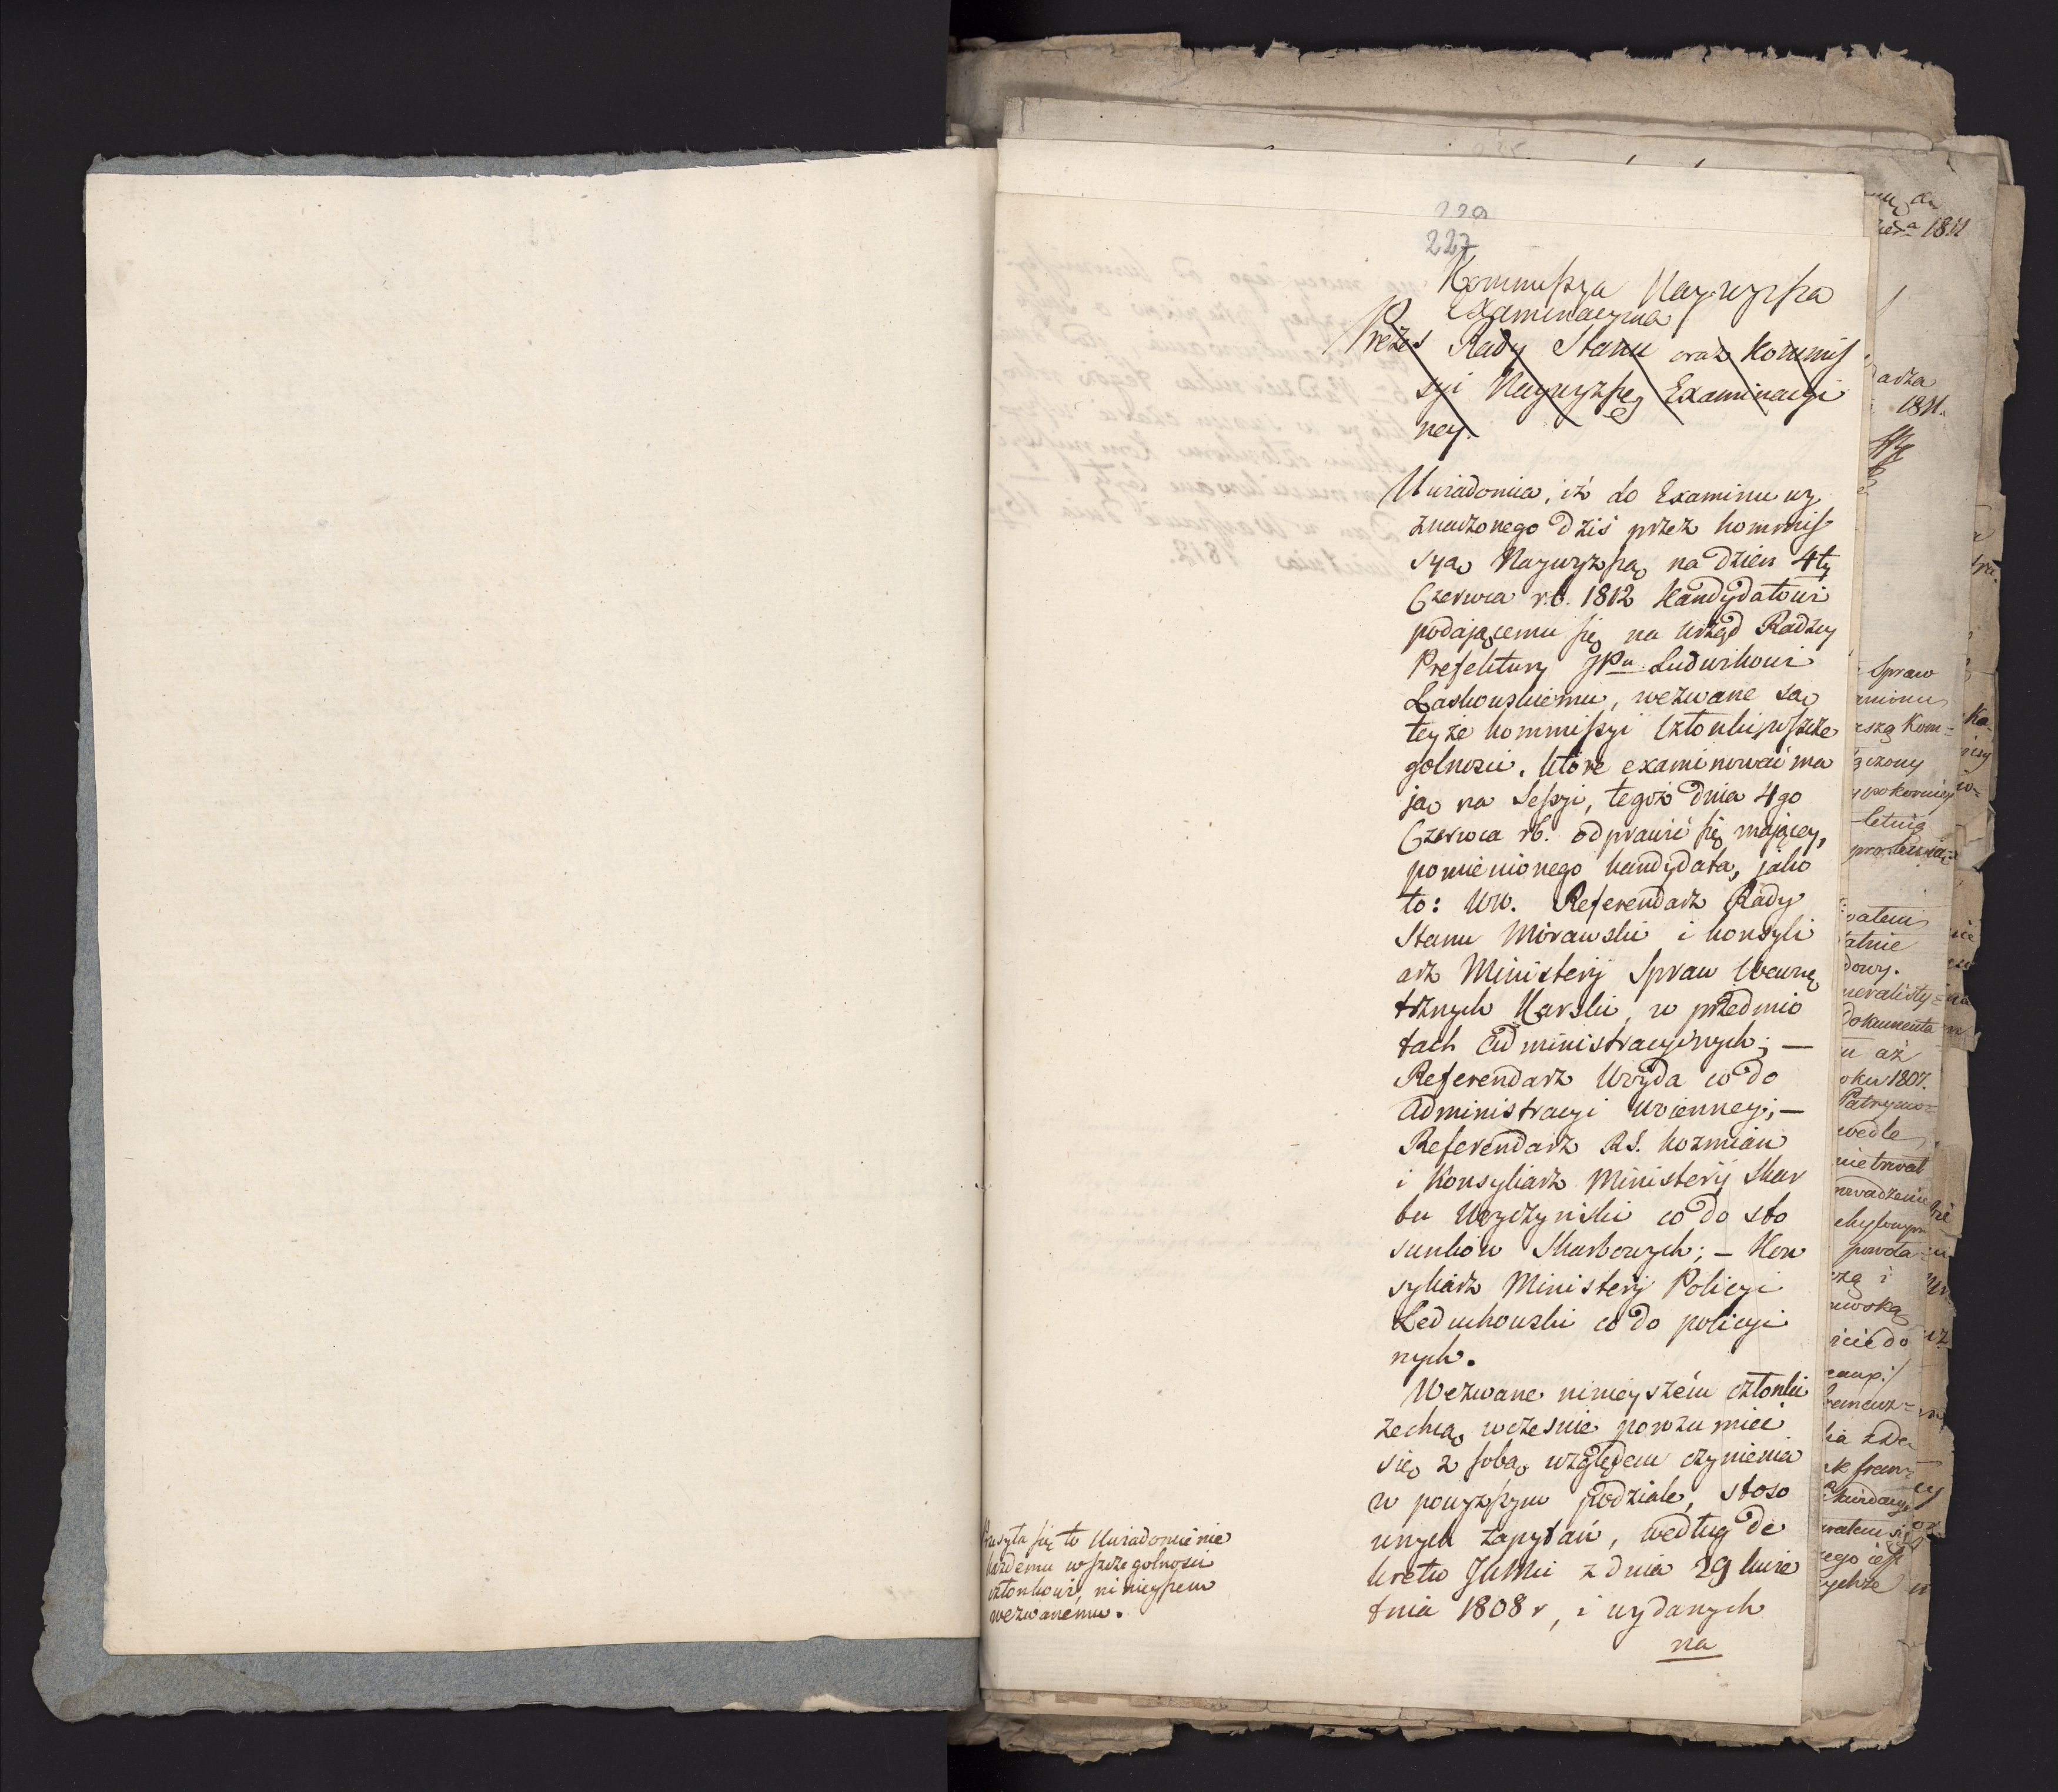 229
227
Kommissya Naywyższa
Examinacyina
Prezes Rady Stanu oraz Kommis
syi Naywyższey Examinacyi
ney.
Uwiadomia, iż do Examinu wy
znaczonego dziś przez Kommis
syą Naywyższą na dzień 4ty
Czerwca r.b. 1812 Kandydatowi
podającemu się na Urząd Radzcy
Prefektury JPu Ludwikowi
Laskowskiemu, wezwane są
teyże Kommissyi Członki, w szcze
golności, które examinować ma
ją na Sessyi, tegoż dnia 4go
Czerwca rb. odprawić się mającey,
pomienionego kandydata, jako
to: WW. Referendarz Rady
Stanu Morawski i Konsyli
arz Ministerÿ Spraw Wewnę
trznych Karski, w przedmio
tach Administracyinych; —
Referendarz Woyda co do
Administracyi Wojenney; —
Referendarz RS. Kozmian
i Konsyliarz Ministerÿ Skar
bu Woyczyński co do sto
sunków Skarbowych; — Kon
syliarz Ministerÿ Policyi
Leduchowski co do policyi
nych.
Wezwane ninieyszém członki
zechcą wcześnie porozumieć
się z sobą względem czynienia
w powyższym podziale, stoso
wnych zapytań, według De
kretu JKMci z dnia 29 kwie
tnia 1808 r, i wydanych
na
Przesyła się to Uwiadomienie
każdemu w szczegolności
członkowi, ninieyszem
wezwanemu.
1811
1811.
Spraw
czony
letnią
dowy.
Dokumenta
u aż
oku 1807.
Patrymo=
wedle